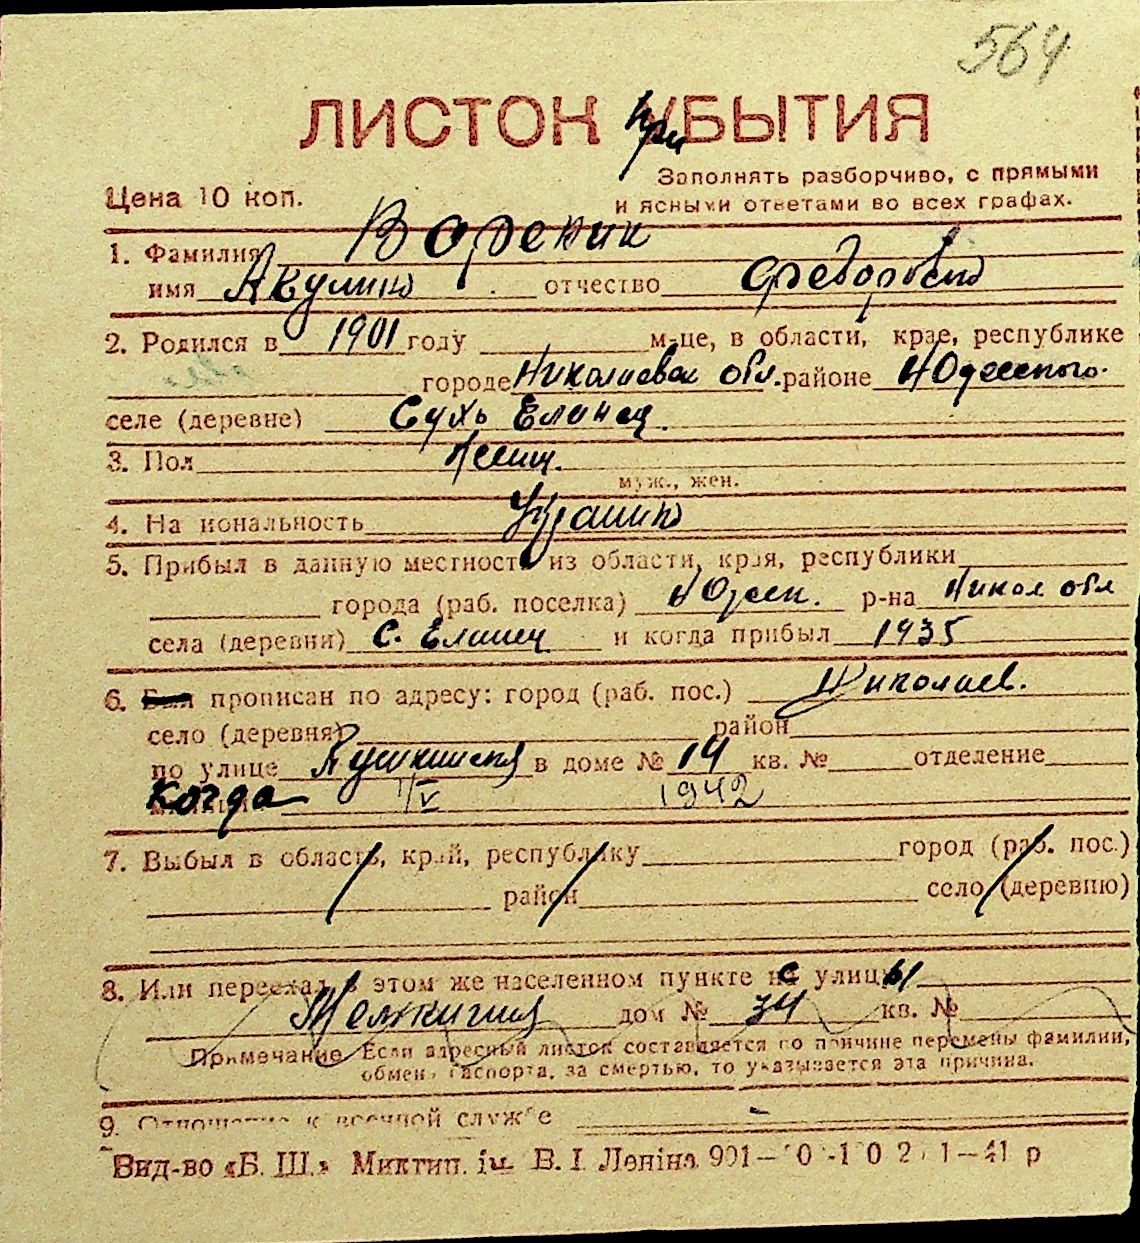 564
ЛИСТОК При УБЫТИЯ
Заполнять разборчиво, с прямыми
Цена 10 коп. и ясными ответами во всех графах.
1. Фамилия
имя Акулина отчество Федоровна
2. Родился в 1901 году м-це, в области, крае, республике
городе Николаевск обл. районе НОдесского
селе (деревне) Сухь Еланец
3. Пол Женщ.
муж., жен.
4. На иональность Украинк
5. Прибыл в данную местность из области, края, республики
города (раб. поселка) НОдесск. р-на Никол обл
села (деревни) С. Еланец и когда прибыл 1935
6. Был прописан по адресу: город (раб. пос.) Николаев.
село (деревня) район
по улице Пушкинская в доме № 14 кв. № отделение
Когда 1/IV 1942
7. Выбыл в область, край, республику город (раб. пос.)
район село (деревню)
8. Или переехал в этом же населенном пункте с улицы
дом № 34 кв. №
Примечание Если адресный листок составляется по причине перемены фамилии,
обмена паспорта, за смертью, то указывается эта причина.
9. Отношение к военной службе
Вид-во «Б. Ш.» Миктип. ім. В. І. Леніна